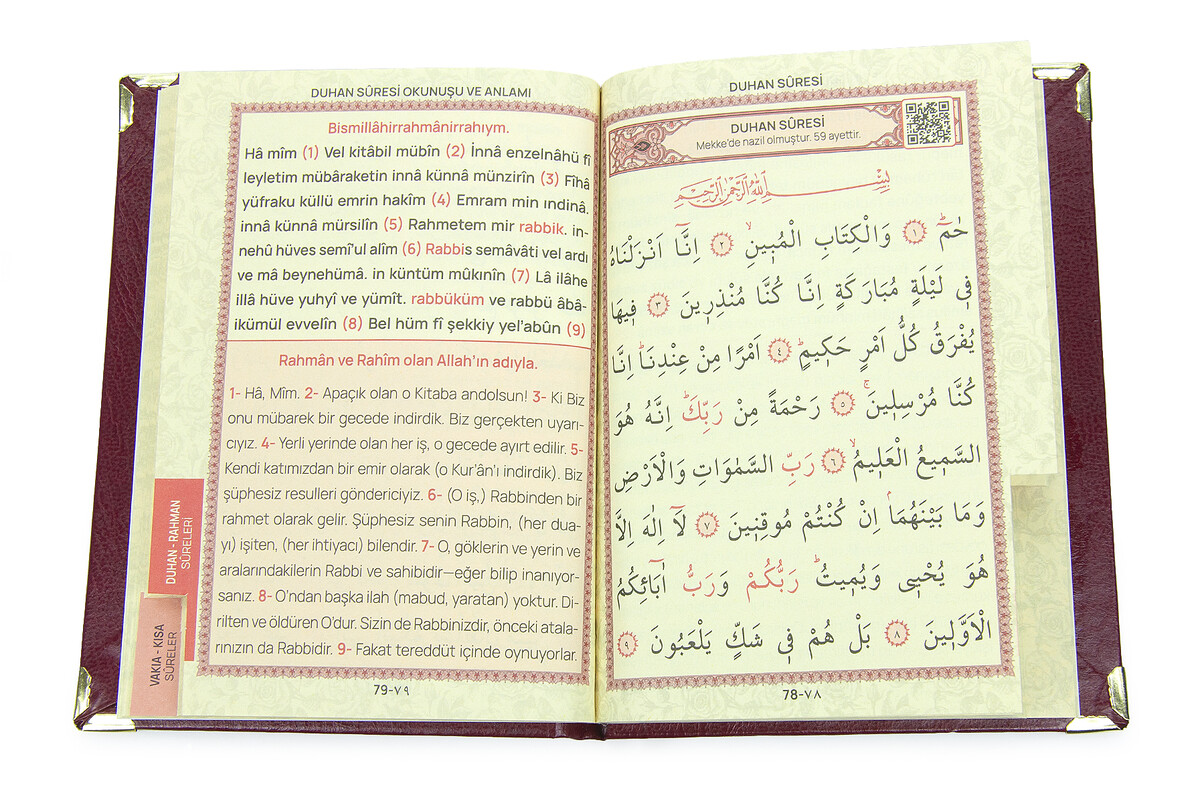 DUHAN SÛRESİ
DUHAN SÛRESİ
Mekke'de nazil olmuştur. 59 ayettir.
بِسْمِ اللّٰهِ الرَّحْمٰنِ الرَّحِيمِ
حٰمٓۜ ﴿١﴾ وَالْكِتَابِ الْمُب۪ينِۙ ﴿٢﴾ اِنَّٓا اَنْزَلْنَاهُ
ف۪ي لَيْلَةٍ مُبَارَكَةٍ اِنَّا كُنَّا مُنْذِر۪ينَ ﴿٣﴾ ف۪يهَا
يُفْرَقُ كُلُّ اَمْرٍ حَك۪يمٍۙ ﴿٤﴾ اَمْرًا مِنْ عِنْدِنَاۜ اِنَّا
كُنَّا مُرْسِل۪ينَۚ ﴿٥﴾ رَحْمَةً مِنْ رَبِّكَۜ اِنَّهُ هُوَ
السَّم۪يعُ الْعَل۪يمُۙ ﴿٦﴾ رَبِّ السَّمٰوَاتِ وَالْاَرْضِ
وَمَا بَيْنَهُمَاۢ اِنْ كُنْتُمْ مُوقِن۪ينَ ﴿٧﴾ لَٓا اِلٰهَ اِلَّا
هُوَ يُحْي۪ي وَيُم۪يتُۜ رَبُّكُمْ وَرَبُّ اٰبَٓائِكُمُ
الْاَوَّل۪ينَ ﴿٨﴾ بَلْ هُمْ ف۪ي شَكٍّ يَلْعَبُونَ ﴿٩﴾
78-٧٨
DUHAN SÛRESİ OKUNUŞU VE ANLAMI
Bismillâhirrahmânirrahıym.
Hâ mîm (1) Vel kitâbil mübîn (2) İnnâ enzelnâhü fî
leyletim mübâraketin innâ künnâ münzirîn (3) Fîhâ
yüfraku küllü emrin hakîm (4) Emram min ındinâ.
innâ künnâ mürsilîn (5) Rahmetem mir rabbik. in-
nehû hüves semî'ul alîm (6) Rabbis semâvâti vel ardı
ve mâ beynehümâ. in küntüm mûkınîn (7) Lâ ilâhe
illâ hüve yuhyî ve yümît. rabbüküm ve rabbü âbâ-
ikümül evvelîn (8) Bel hüm fî şekkiy yel'abûn (9)
Rahmân ve Rahîm olan Allah'ın adıyla.
1- Hâ, Mîm. 2- Apaçık olan o Kitaba andolsun! 3- Ki Biz
onu mübarek bir gecede indirdik. Biz gerçekten uyarı-
cıyız. 4- Yerli yerinde olan her iş, o gecede ayırt edilir. 5-
Kendi katımızdan bir emir olarak (o Kur'ân'ı indirdik). Biz
şüphesiz resulleri göndericiyiz. 6- (O iş,) Rabbinden bir
rahmet olarak gelir. Şüphesiz senin Rabbin, (her dua-
yı) işiten, (her ihtiyacı) bilendir. 7- O, göklerin ve yerin ve
aralarındakilerin Rabbi ve sahibidir—eğer bilip inanıyor-
sanız. 8- O'ndan başka ilah (mabud, yaratan) yoktur. Di-
rilten ve öldüren O'dur. Sizin de Rabbinizdir, önceki atala-
rınızın da Rabbidir. 9- Fakat tereddüt içinde oynuyorlar.
79-٧٩
DUHAN - RAHMAN
SÛRELERİ
VAKIA - KISA
SÛRELER